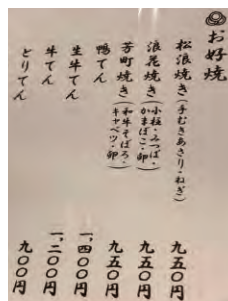 お好焼
松浪焼き(手むきあさり・ねぎ) 九五〇円
浪花焼き(小柱・みつば・かまぼこ・卵) 九五〇円
芳町焼き(和牛そぼろ・キャベツ・卵) 九五〇円
鴨てん 一、四〇〇円
生牛てん 一、二〇〇円
牛てん 九〇〇円
とりてん